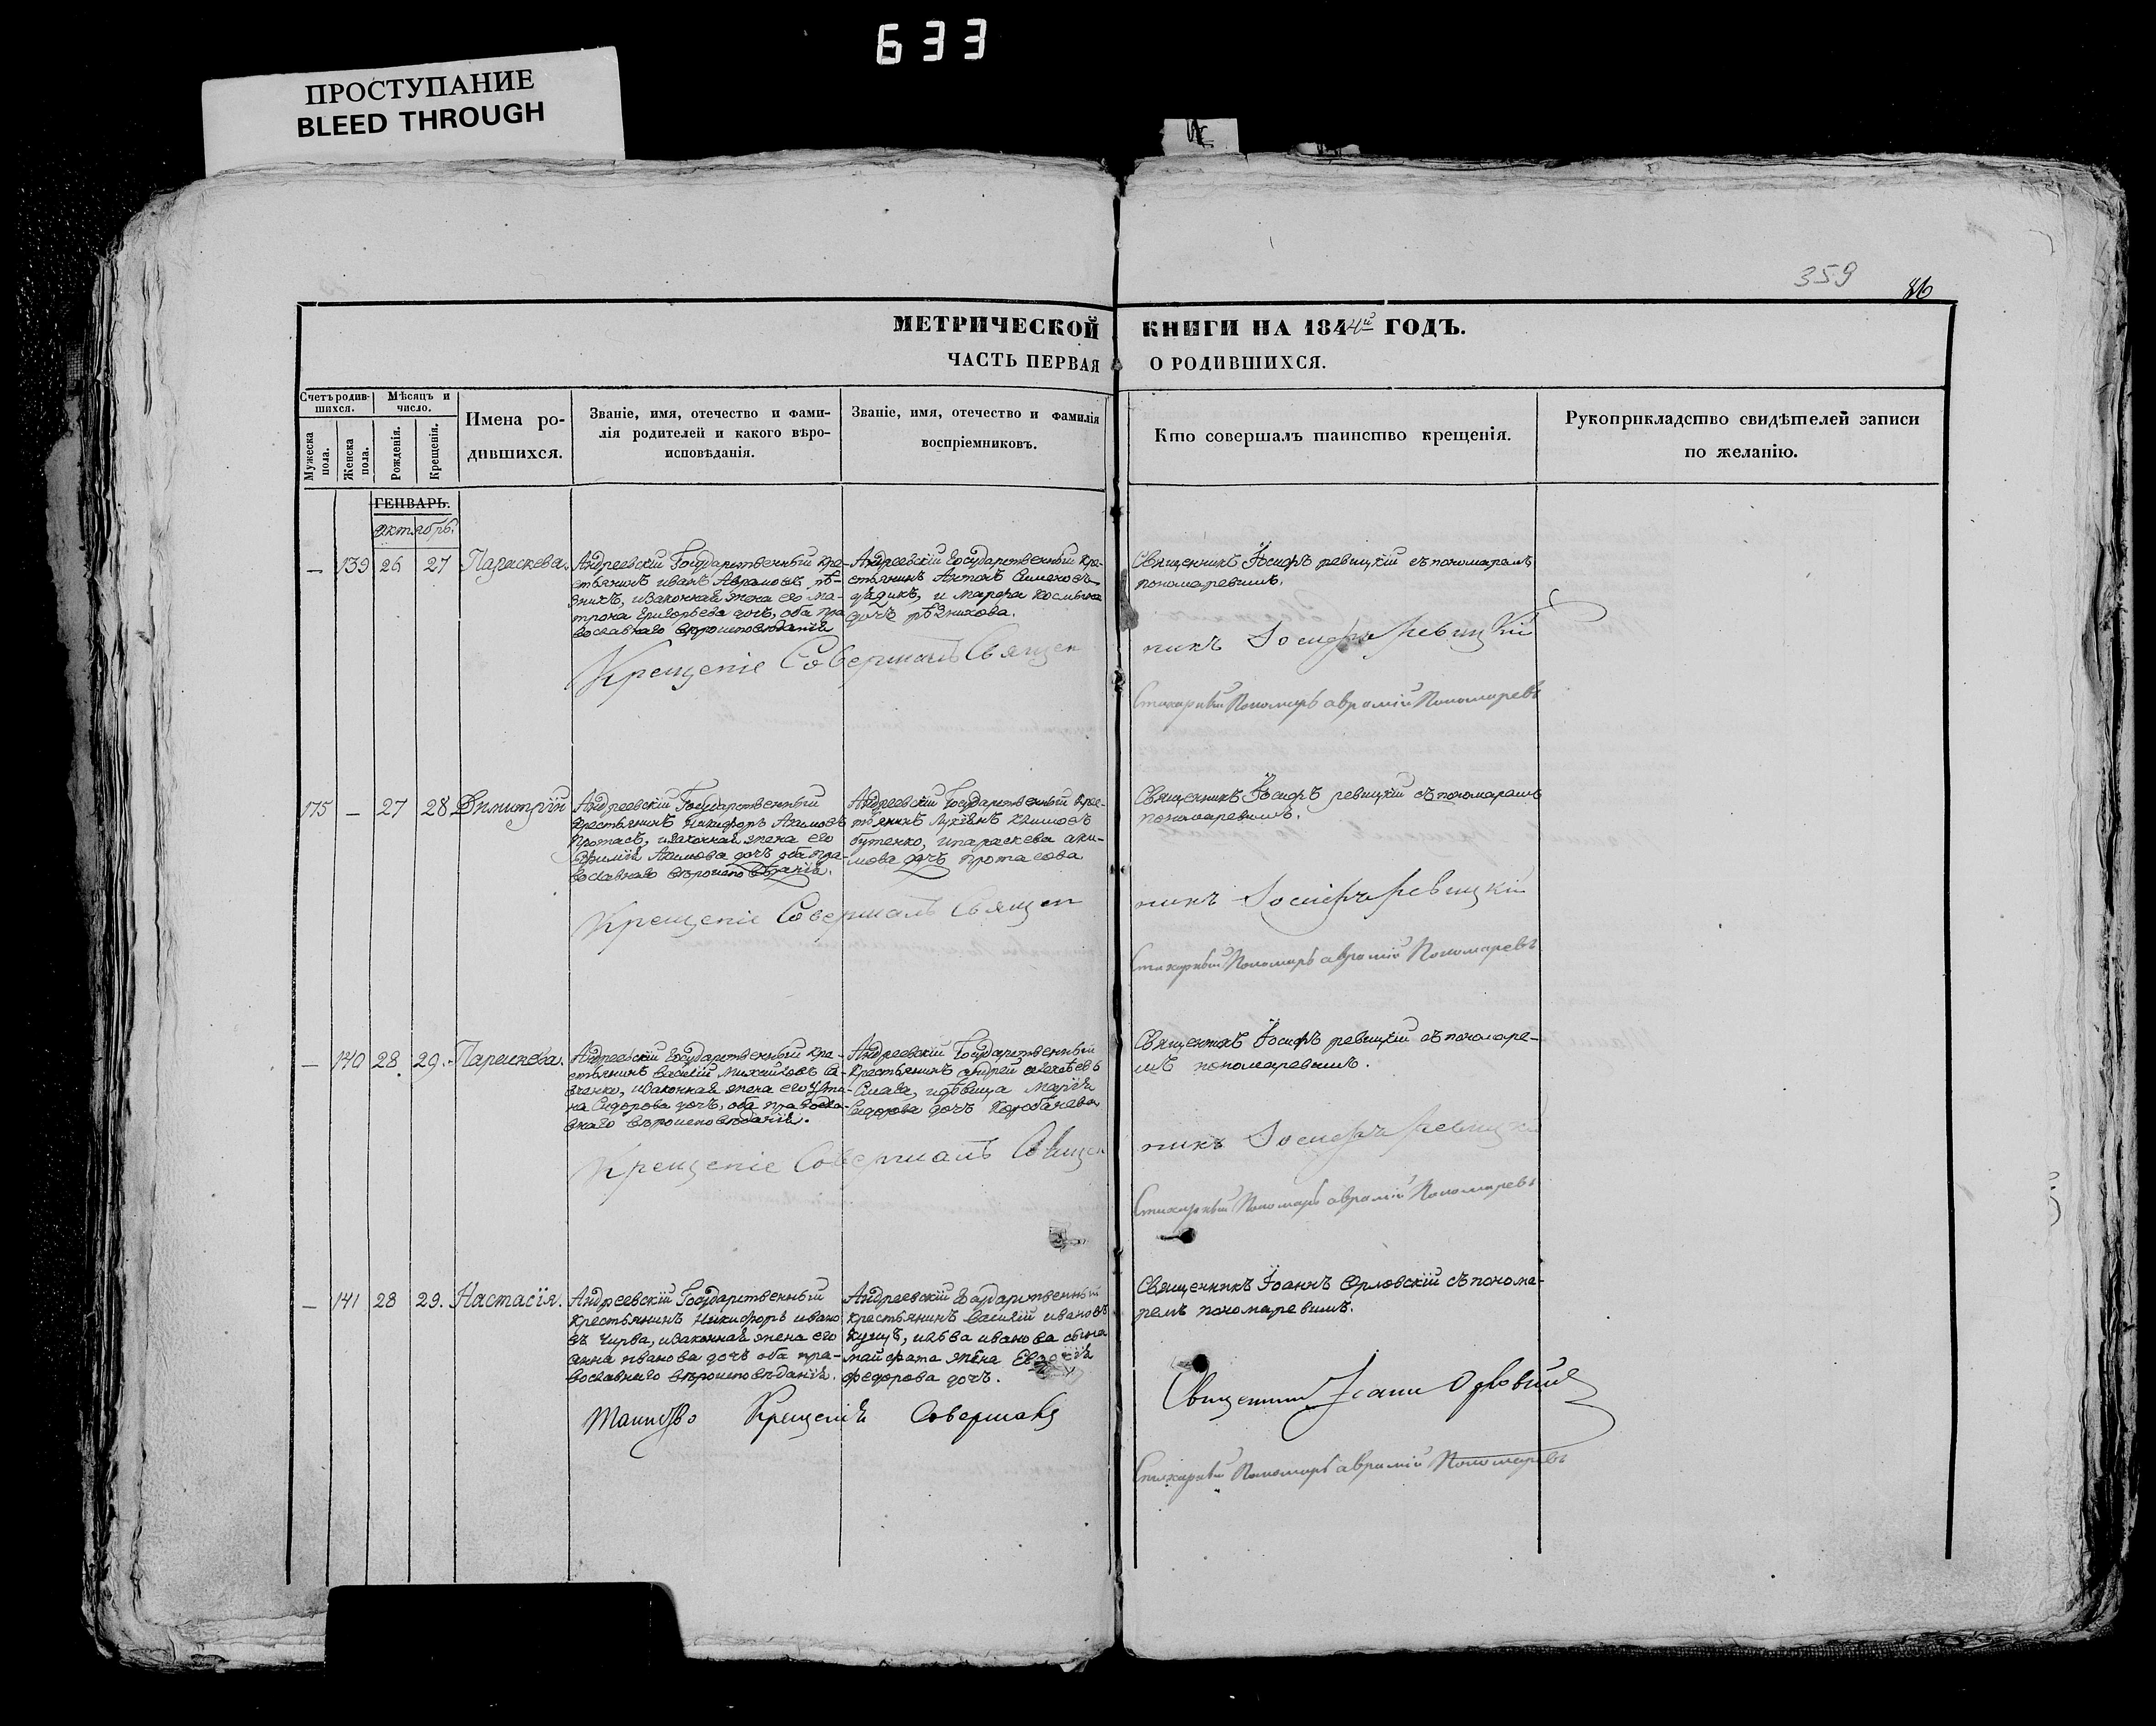 633
ПРОСТУПАНИЕ
BLEED THROUGH
359
86
МЕТРИЧЕСКОЙ КНИГИ НА 1844й ГОДЪ.
ЧАСТЬ ПЕРВАЯ О РОДИВШИХСЯ.
Счетъ родив-
шихся.
Мужеска
пола.
Женска
пола.
Мѣсяцъ и
число.
Рожденія.
Крещенія.
Имена ро-
дившихся.
Званіе, имя, отечество и фами-
лія родителей и какого вѣро-
исповѣданія.
Званіе, имя, отечество и фамилія
воспріемниковъ.
Кто совершалъ таинство крещенія.
Рукоприкладство свидѣтелей записи
по желанію.
ГЕНВАРЬ.
Октябрь.
— 139 26 27 Параскева.
Андреевскій Государственный кре-
стьянинъ иванъ Аврамовъ рѣ-
зникъ, изаконная жена его ма-
трона Григорьева дочь, оба пра
вославнаго вѣроисповѣданія
Андреевскій Государственный кре-
стьянинъ Антонъ Симеоновъ
дядикъ, и марфа космына
дочь рѣзникова.
Священникъ Іосифъ ревицкій съ пономаремъ
пономаревымъ.
Крещеніе Совершалъ Священ
никъ Іосифъ Ревицкій
Стихарный Пономарь аврамій Пономаревъ
175 — 27 28 Димитрій
Андреевскій Государственный
крестьянинъ Никифоръ Акимовъ
Протасъ, изаконная жена его
Ефимія Акимова дочь оба пра-
вославнаго вѣроисповѣданія.
Андреевскій Государственный крес-
тьянинъ Лукіянъ Климовъ
бутенко, ипараскева аки-
мова дочь протасова
Священникъ Іосифъ ревицкій съ пономаремъ
пономаревымъ.
Крещеніе Совершалъ Священ
никъ Іосифъ Ревицкій
Стихарный Пономарь аврамій Пономаревъ
— 140 28 29. Параскева.
Андреевскій Государственный кре-
стьянинъ Василій Михайловъ Са-
вченко, изаконная жена его Устѣ-
на Сидорова дочь, оба правосла-
внаго вѣроисповѣданія.
Андреевскій Государственный
крестьянинъ андрей алексѣевъ
идѣвица Марія
Сидорова дочь
Священникъ Іосифъ ревицкій съ пономаре-
мъ пономаревымъ.
Крещеніе Совершалъ Священ
никъ Іосифъ Ревицкій
Стихарный Пономарь аврамій Пономаревъ
— 141 28 29. Настасія.
Андреевскій Государственный
крестьянинъ Никифоръ ивано
въ Чирва, изаконная жена его
анна иванова дочь оба пра-
вославнаго вѣроисповѣданія.
Андреевскій Государственный
крестьянинъ василій ивановъ
куцъ, илѣва иванова сына
жена
федорова дочь.
Священникъ Іоаннъ Орловскій съ понома-
ремъ пономаревымъ.
Таинство Крещенія Совершалъ
Священникъ Іоаннъ Орловскій
Стихарный Пономарь аврамій Пономаревъ